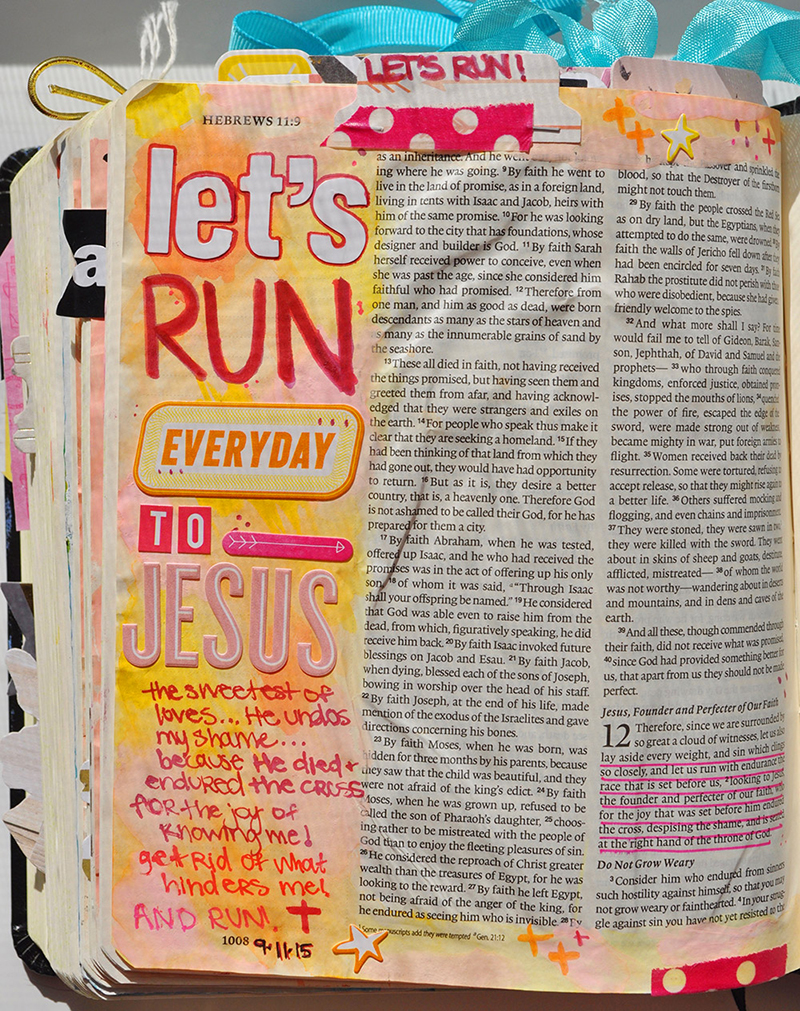 LET'S RUN!
HEBREWS 11:9
let's
RUN
EVERYDAY
TO
JESUS
the sweetest of
loves... He undos
my shame...
because He died +
endured the cross
for the joy of
knowing me!
get rid of what
hinders me!
AND RUN.
1008 9.11.15
a
as an inheritance. And he went
ing where he was going. 9 By faith he went to
live in the land of promise, as in a foreign land,
living in tents with Isaac and Jacob, heirs with
him of the same promise. 10 For he was looking
forward to the city that has foundations, whose
designer and builder is God. 11 By faith Sarah
herself received power to conceive, even when
she was past the age, since she considered him
faithful who had promised. 12 Therefore from
one man, and him as good as dead, were born
descendants as many as the stars of heaven and
as many as the innumerable grains of sand by
the seashore.
13 These all died in faith, not having received
the things promised, but having seen them and
greeted them from afar, and having acknowl-
edged that they were strangers and exiles on
the earth. 14 For people who speak thus make it
clear that they are seeking a homeland. 15 If they
had been thinking of that land from which they
had gone out, they would have had opportunity
to return. 16 But as it is, they desire a better
country, that is, a heavenly one. Therefore God
is not ashamed to be called their God, for he has
prepared for them a city.
17 By faith Abraham, when he was tested,
offered up Isaac, and he who had received the
promises was in the act of offering up his only
son, 18 of whom it was said, a "Through Isaac
shall your offspring be named." 19 He considered
that God was able even to raise him from the
dead, from which, figuratively speaking, he did
receive him back. 20 By faith Isaac invoked future
blessings on Jacob and Esau. 21 By faith Jacob,
when dying, blessed each of the sons of Joseph,
bowing in worship over the head of his staff.
22 By faith Joseph, at the end of his life, made
mention of the exodus of the Israelites and gave
directions concerning his bones.
23 By faith Moses, when he was born, was
hidden for three months by his parents, because
they saw that the child was beautiful, and they
were not afraid of the king's edict. 24 By faith
Moses, when he was grown up, refused to be
called the son of Pharaoh's daughter, 25 choos-
ing rather to be mistreated with the people of
God than to enjoy the fleeting pleasures of sin.
26 He considered the reproach of Christ greater
wealth than the treasures of Egypt, for he was
looking to the reward. 27 By faith he left Egypt,
not being afraid of the anger of the king, for
he endured as seeing him who is invisible. 28 By
Some manuscripts add they were tempted a Gen. 21:12
and sprinkled the
blood, so that the Destroyer of the firstborn
might not touch them.
29 By faith the people crossed the Red Sea
as on dry land, but the Egyptians, when they
attempted to do the same, were drowned. 30 By
faith the walls of Jericho fell down after they
had been encircled for seven days. 31 By faith
Rahab the prostitute did not perish with those
who were disobedient, because she had given
friendly welcome to the spies.
32 And what more shall I say? For time
would fail me to tell of Gideon, Barak, Sam-
son, Jephthah, of David and Samuel and the
prophets— 33 who through faith conquered
kingdoms, enforced justice, obtained prom-
ises, stopped the mouths of lions, 34 quenched
the power of fire, escaped the edge of the
sword, were made strong out of weakness,
became mighty in war, put foreign armies to
flight. 35 Women received back their dead by
resurrection. Some were tortured, refusing to
accept release, so that they might rise again to
a better life. 36 Others suffered mocking and
flogging, and even chains and imprisonment.
37 They were stoned, they were sawn in two,
they were killed with the sword. They went
about in skins of sheep and goats, destitute,
afflicted, mistreated— 38 of whom the world
was not worthy—wandering about in deserts
and mountains, and in dens and caves of the
earth.
39 And all these, though commended through
their faith, did not receive what was promised,
40 since God had provided something better for
us, that apart from us they should not be made
perfect.
Jesus, Founder and Perfecter of Our Faith
12 Therefore, since we are surrounded by
so great a cloud of witnesses, let us also
lay aside every weight, and sin which clings
so closely, and let us run with endurance the
race that is set before us, 2 looking to Jesus,
the founder and perfecter of our faith, who
for the joy that was set before him endured
the cross, despising the shame, and is seated
at the right hand of the throne of God.
Do Not Grow Weary
3 Consider him who endured from sinners
such hostility against himself, so that you may
not grow weary or fainthearted. 4 In your strug-
gle against sin you have not yet resisted to the